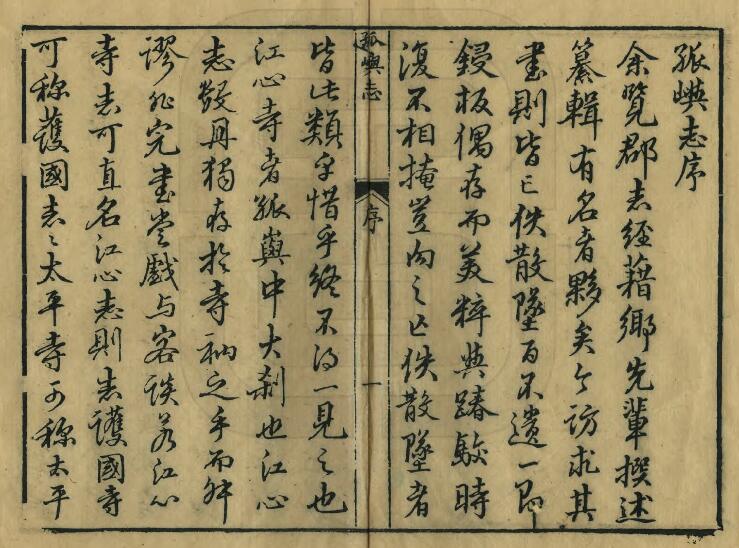 孤嶼志序
余覽郡志經藉鄉先輩撰述
纂輯有名者夥矣今訪求其
書則皆已佚散墜百不遺一即
鋟板偶存而美粹與踳駮時
復不相掩豈向之亡佚散墜者
孤嶼志
序
一
皆此類乎惜乎終不得一見之也
江心寺者孤嶼中大刹也江心
志數冊獨存於寺衲之手而舛
謬非完書嘗戲与客談若江心
寺志可直名江心志則志護國寺
可称護國志志太平寺可称太平